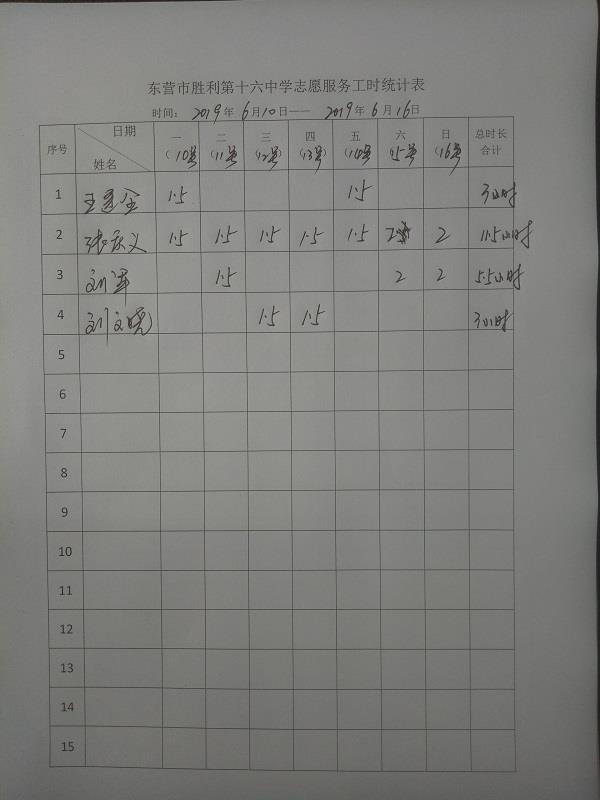 东营市胜利第十六中学志愿服务工时统计表
时间: 2019年 6月10日—— 2019年 6月16日
序号 日期 姓名 一 (10号) 二 (11号) 三 (12号) 四 (13号) 五 (14号) 六 (15号) 日 (16号) 总时长合计
1 1.5 1.5 3小时
2 张庆义 1.5 1.5 1.5 1.5 1.5 2 2 11.5小时
3 刘军 1.5 2 2 5.5小时
4 刘文晓 1.5 1.5 3小时
5
6
7
8
9
10
11
12
13
14
15